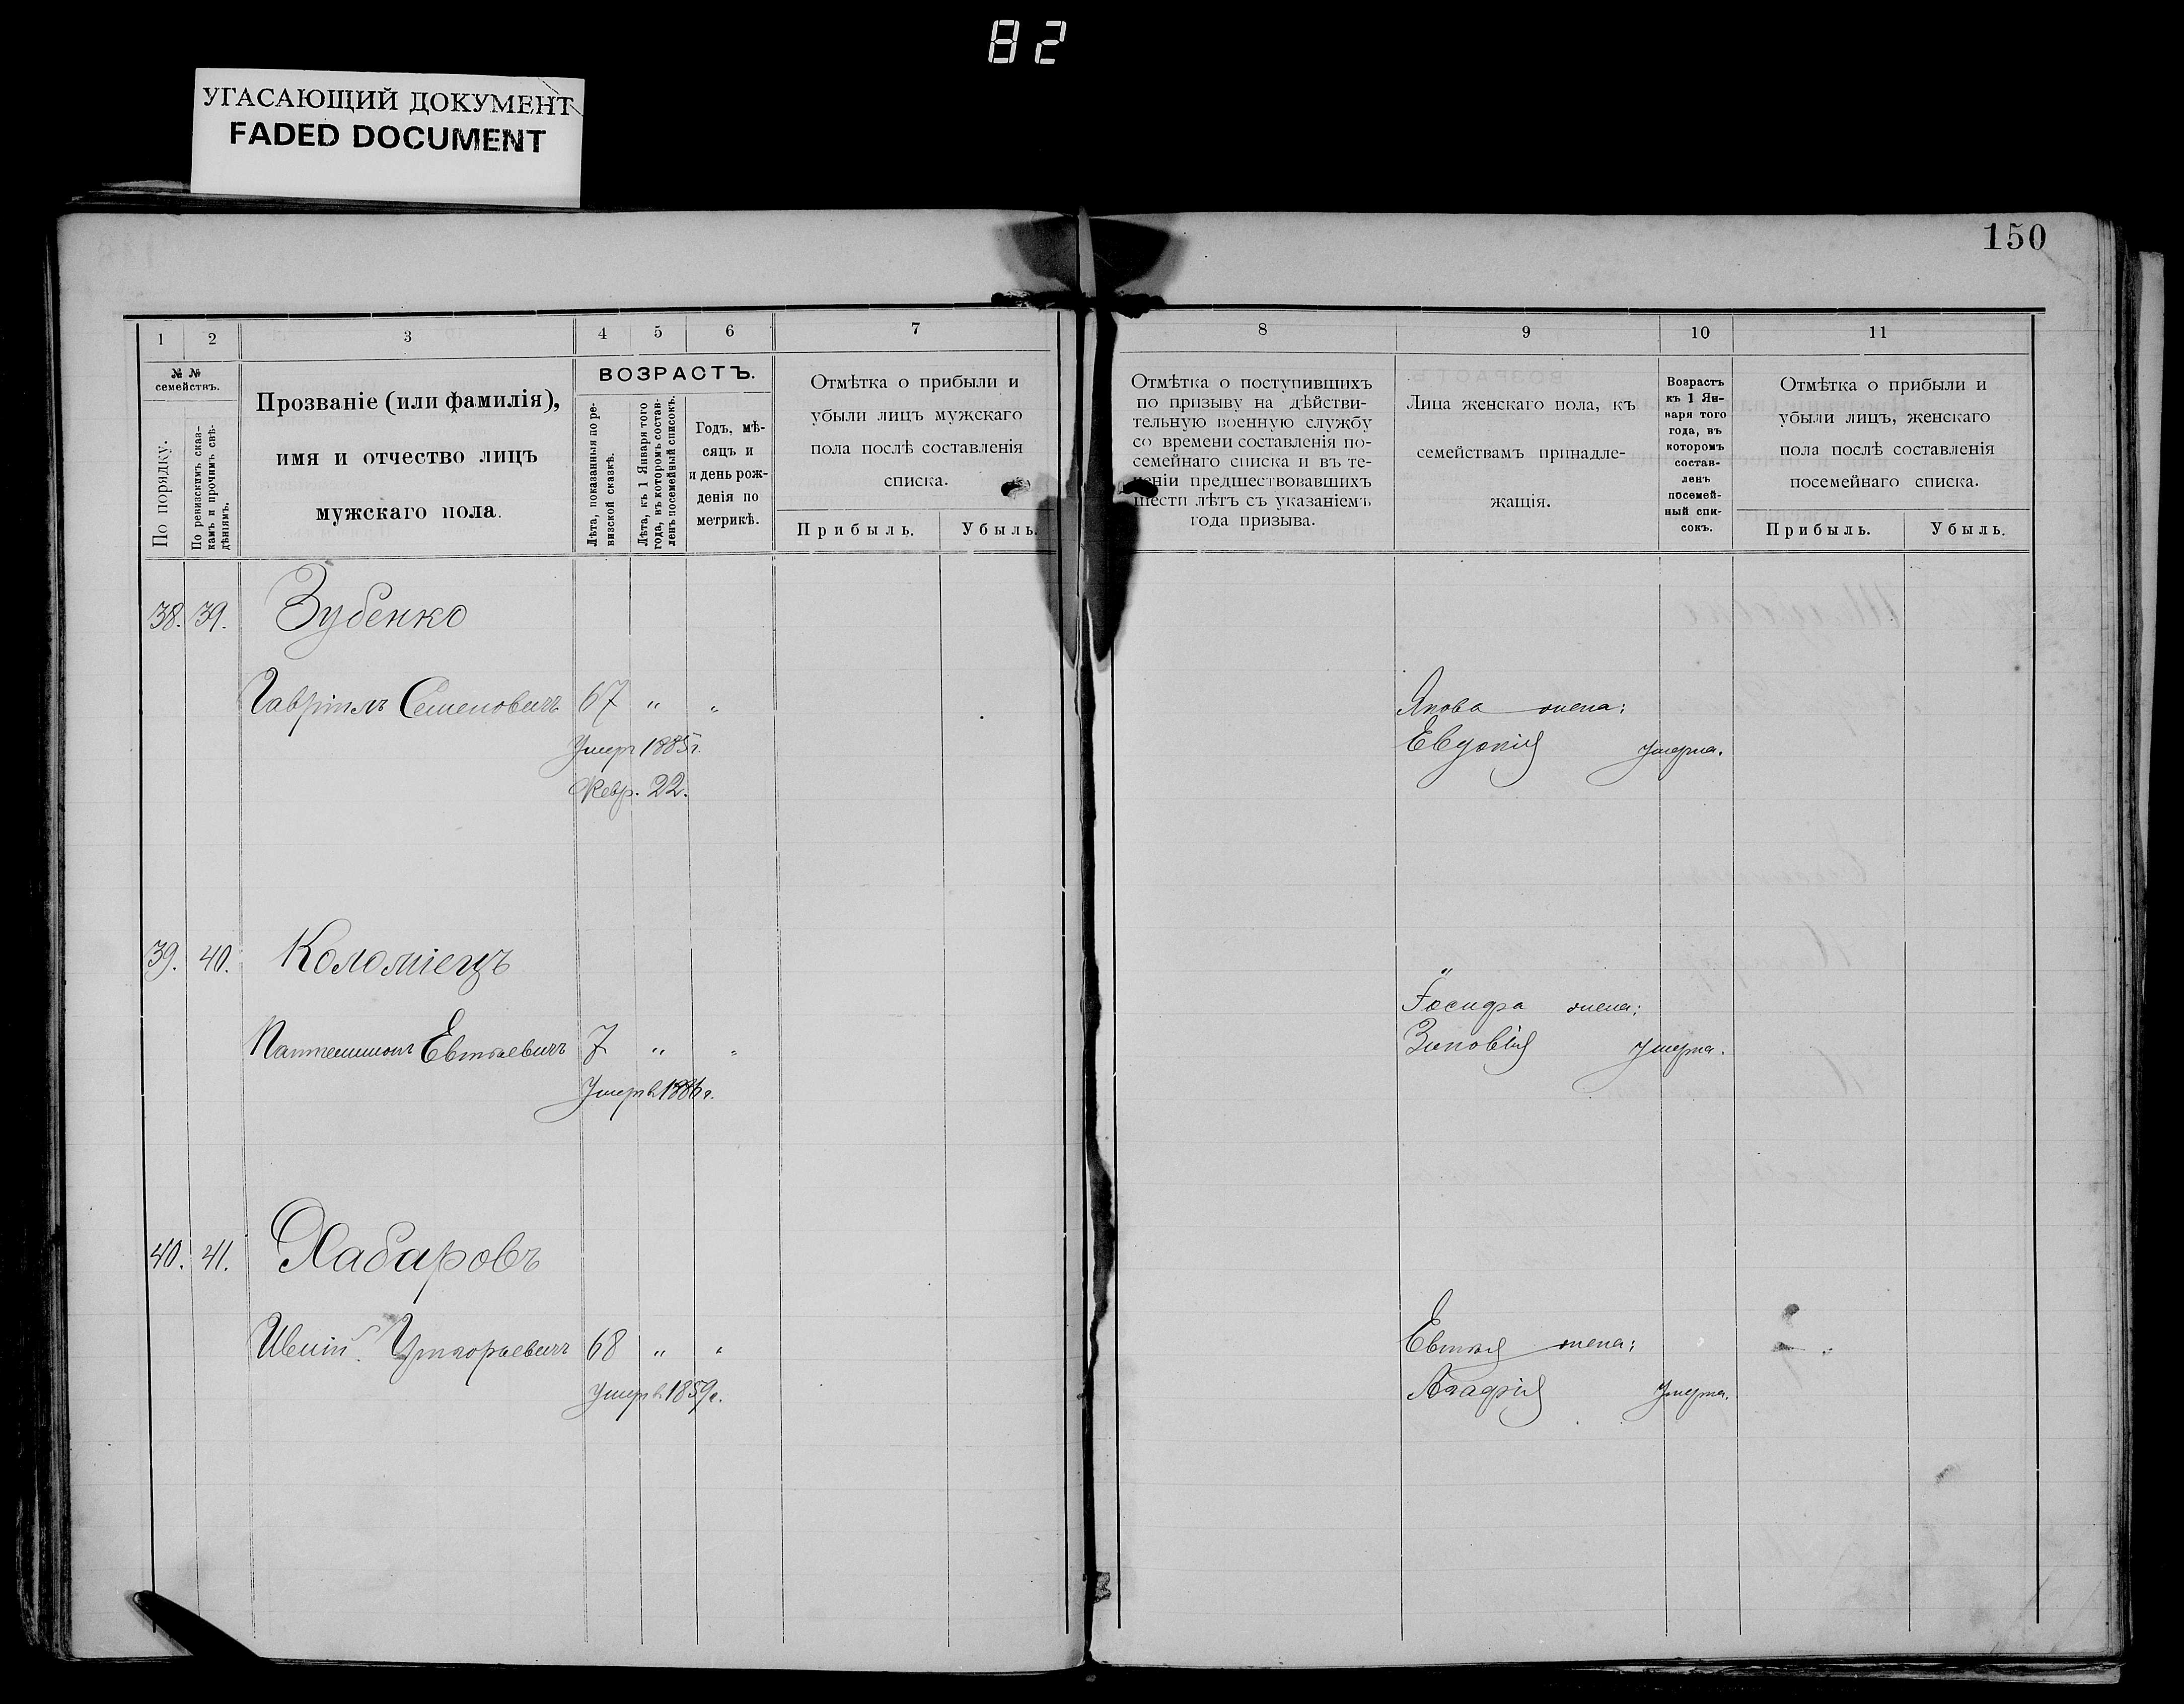 82
УГАСАЮЩИЙ ДОКУМЕНТ
FADED DOCUMENT
150
1 2 3 4 5 6 7
№ № семействъ.
По порядку.
По ревизскимъ сказ-
камъ и прочимъ свѣ-
дѣніямъ.
Прозваніе (или фамилія),
имя и отчество лицъ
мужскаго пола.
ВОЗРАСТЪ.
Лѣта, показанныя по ре-
визской сказкѣ.
Лѣта, къ 1 Января того
года, въ которомъ состав-
ленъ посемейный списокъ.
Годъ, мѣ-
сяцъ и
и день рож-
денія по
метрикѣ.
Отмѣтка о прибыли и
убыли лицъ мужскаго
пола послѣ составленія
списка.
Прибыль. Убыль.
38. 39. Зубенко
Гавріилъ Семеновичъ 67 " "
Умеръ 1885 г.
Февр. 22.
39. 40. Коломіецъ
Евтѣевичъ 7 " "
Умеръ в 1886 г.
40. 41. Хабаровъ
68 " "
Умеръ в 1859 г.
8 9 10 11
Отмѣтка о поступившихъ
по призыву на дѣйстви-
тельную военную службу
со времени составленія по-
семейнаго списка и въ те-
ченіи предшествовавшихъ
шести лѣтъ съ указаніемъ
года призыва.
Лица женскаго пола, къ
семействамъ принадле-
жащія.
Возрастъ
къ 1 Ян-
варя того
года, въ
которомъ
состав-
ленъ
посемей-
ный спи-
сокъ.
Отмѣтка о прибыли и
убыли лицъ, женскаго
пола послѣ составленія
посемейнаго списка.
Прибыль. Убыль.
Якова жена:
Евдокія умерла.
"
жена:
Зиновія умерла.
Евтѣя жена:
Агафія умерла.